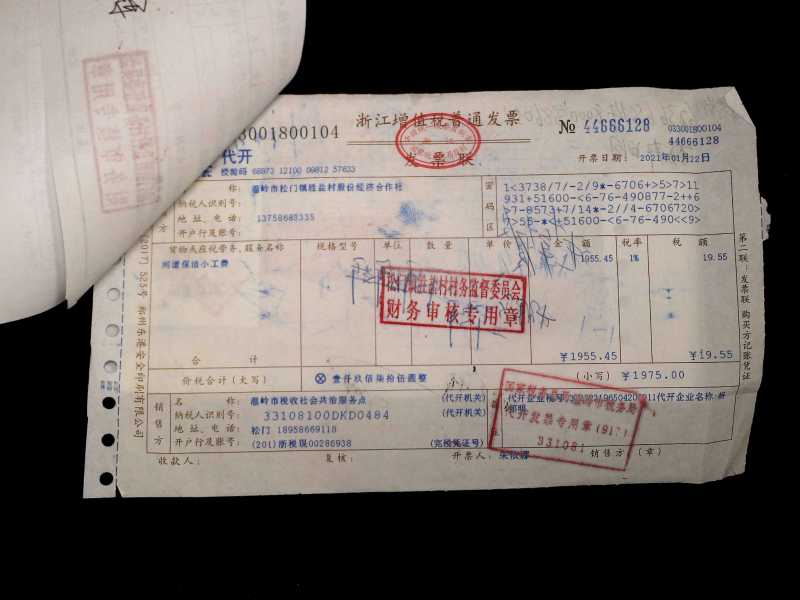 浙江增值税普通发票
发票联
3001800104
№ 44666128
033001800104
44666128
代开
校验码 68973 12100 09812 57633
开票日期: 2021年01月22日
称: 温岭市松门镇胜盐村股份经济合作社
纳税人识别号:
地址、电话: 13758685335
开户行及账号:
方
密码区
1<3738/7/-2/9*-6706+>5>7>11
931+51600-<6-76-490877-2++6
>7-8573+7/14*-2//4-6706720>
7>55-*<+51600-<6-76-490<<9>
货物或应税劳务、服务名称
规格型号
单位
数量
单价
金额
税率
税额
河道保洁小工费
1955.45
1%
19.55
松门镇胜盐村村务监督委员会
财务审核专用章
合计
¥1955.45
¥19.55
价税合计 (大写)
壹仟玖佰柒拾伍圆整
(小写) ¥1975.00
销售方
名称: 温岭市税收社会共治服务点
(代开机关)
纳税人识别号: 33108100DKD0484
(代开机关)
地址、电话: 松门 18958669118
开户行及账号: (201)浙税现00286938
(完税凭证号)
国家税务总局温岭市税务局
代开发票专用章
331081
收款人:
复核:
开票人:
销售方: (章)
第二联: 发票联 购买方记账凭证
(2017) 525号 郑州东港安全印刷有限公司